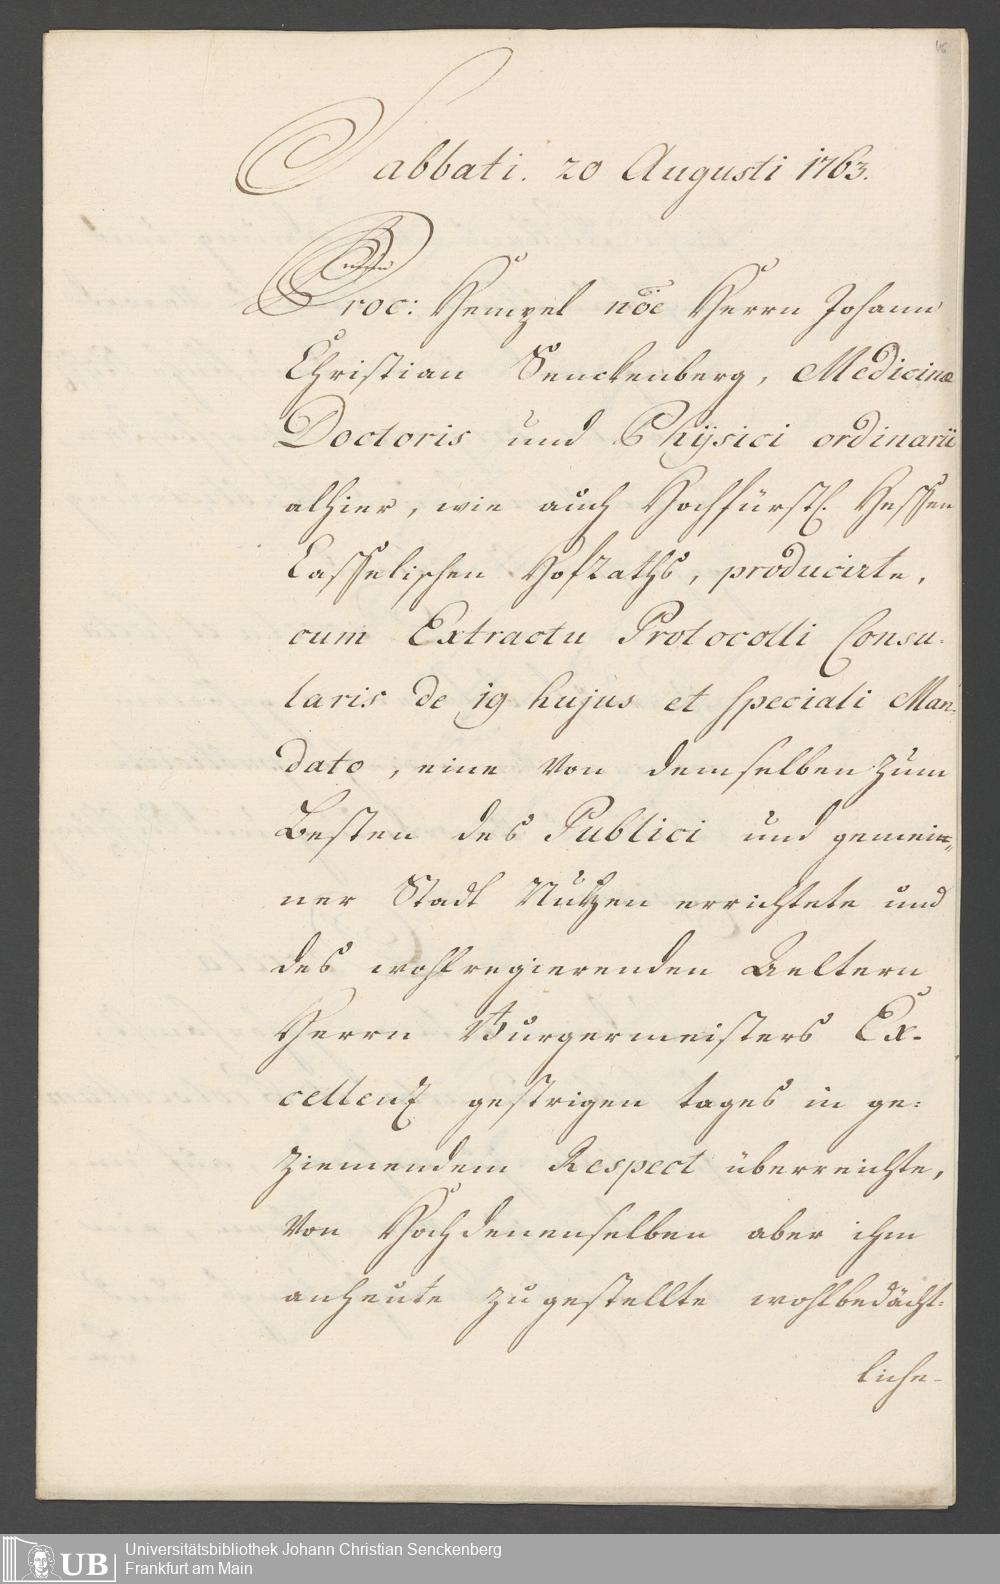 Sabbati. 20 Augusti 1763.
Proc: Hempel nõe Herrn Johann
Christian Senckenberg, Medicinæ
Doctoris und Phÿsici ordinarii
alhier, wie auch Hochfürstl. Hessen
Casselischen Hofraths, producirte,
cum Extractu Protocolli Consu-
laris de 19 hujus et speciali Man-
dato, eine von demselben zum
Besten des Publici und gemei-
ner Stadt Nutzen errichtete und
des wohlregierenden Aeltern
Herrn Burgermeisters Ex-
cellenz gestrigen tages in ge-
ziemendem Respect überreichte,
von Hochdenenselben aber ihm
anheute zugestellte wohlbedächt-
liche-
UB
Universitätsbibliothek Johann Christian Senckenberg
Frankfurt am Main